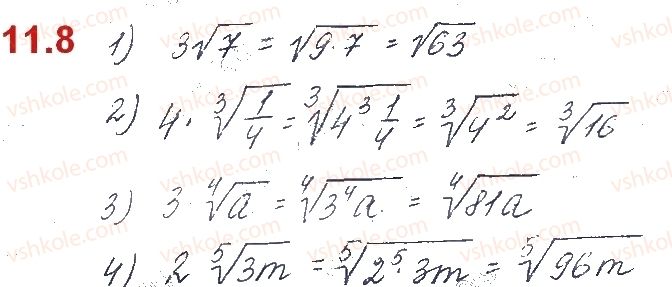 11.8 1) 3√7 = √9·7 = √63
2) 4·∛(1/4) = ∛(4³ 1/4) = ∛(4²) = ∛16
3) 3·⁴√a = ⁴√(3⁴a) = ⁴√(81a)
4) 2 ⁵√(3m) = ⁵√(2⁵·3m) = ⁵√(96m)
vshkole.com